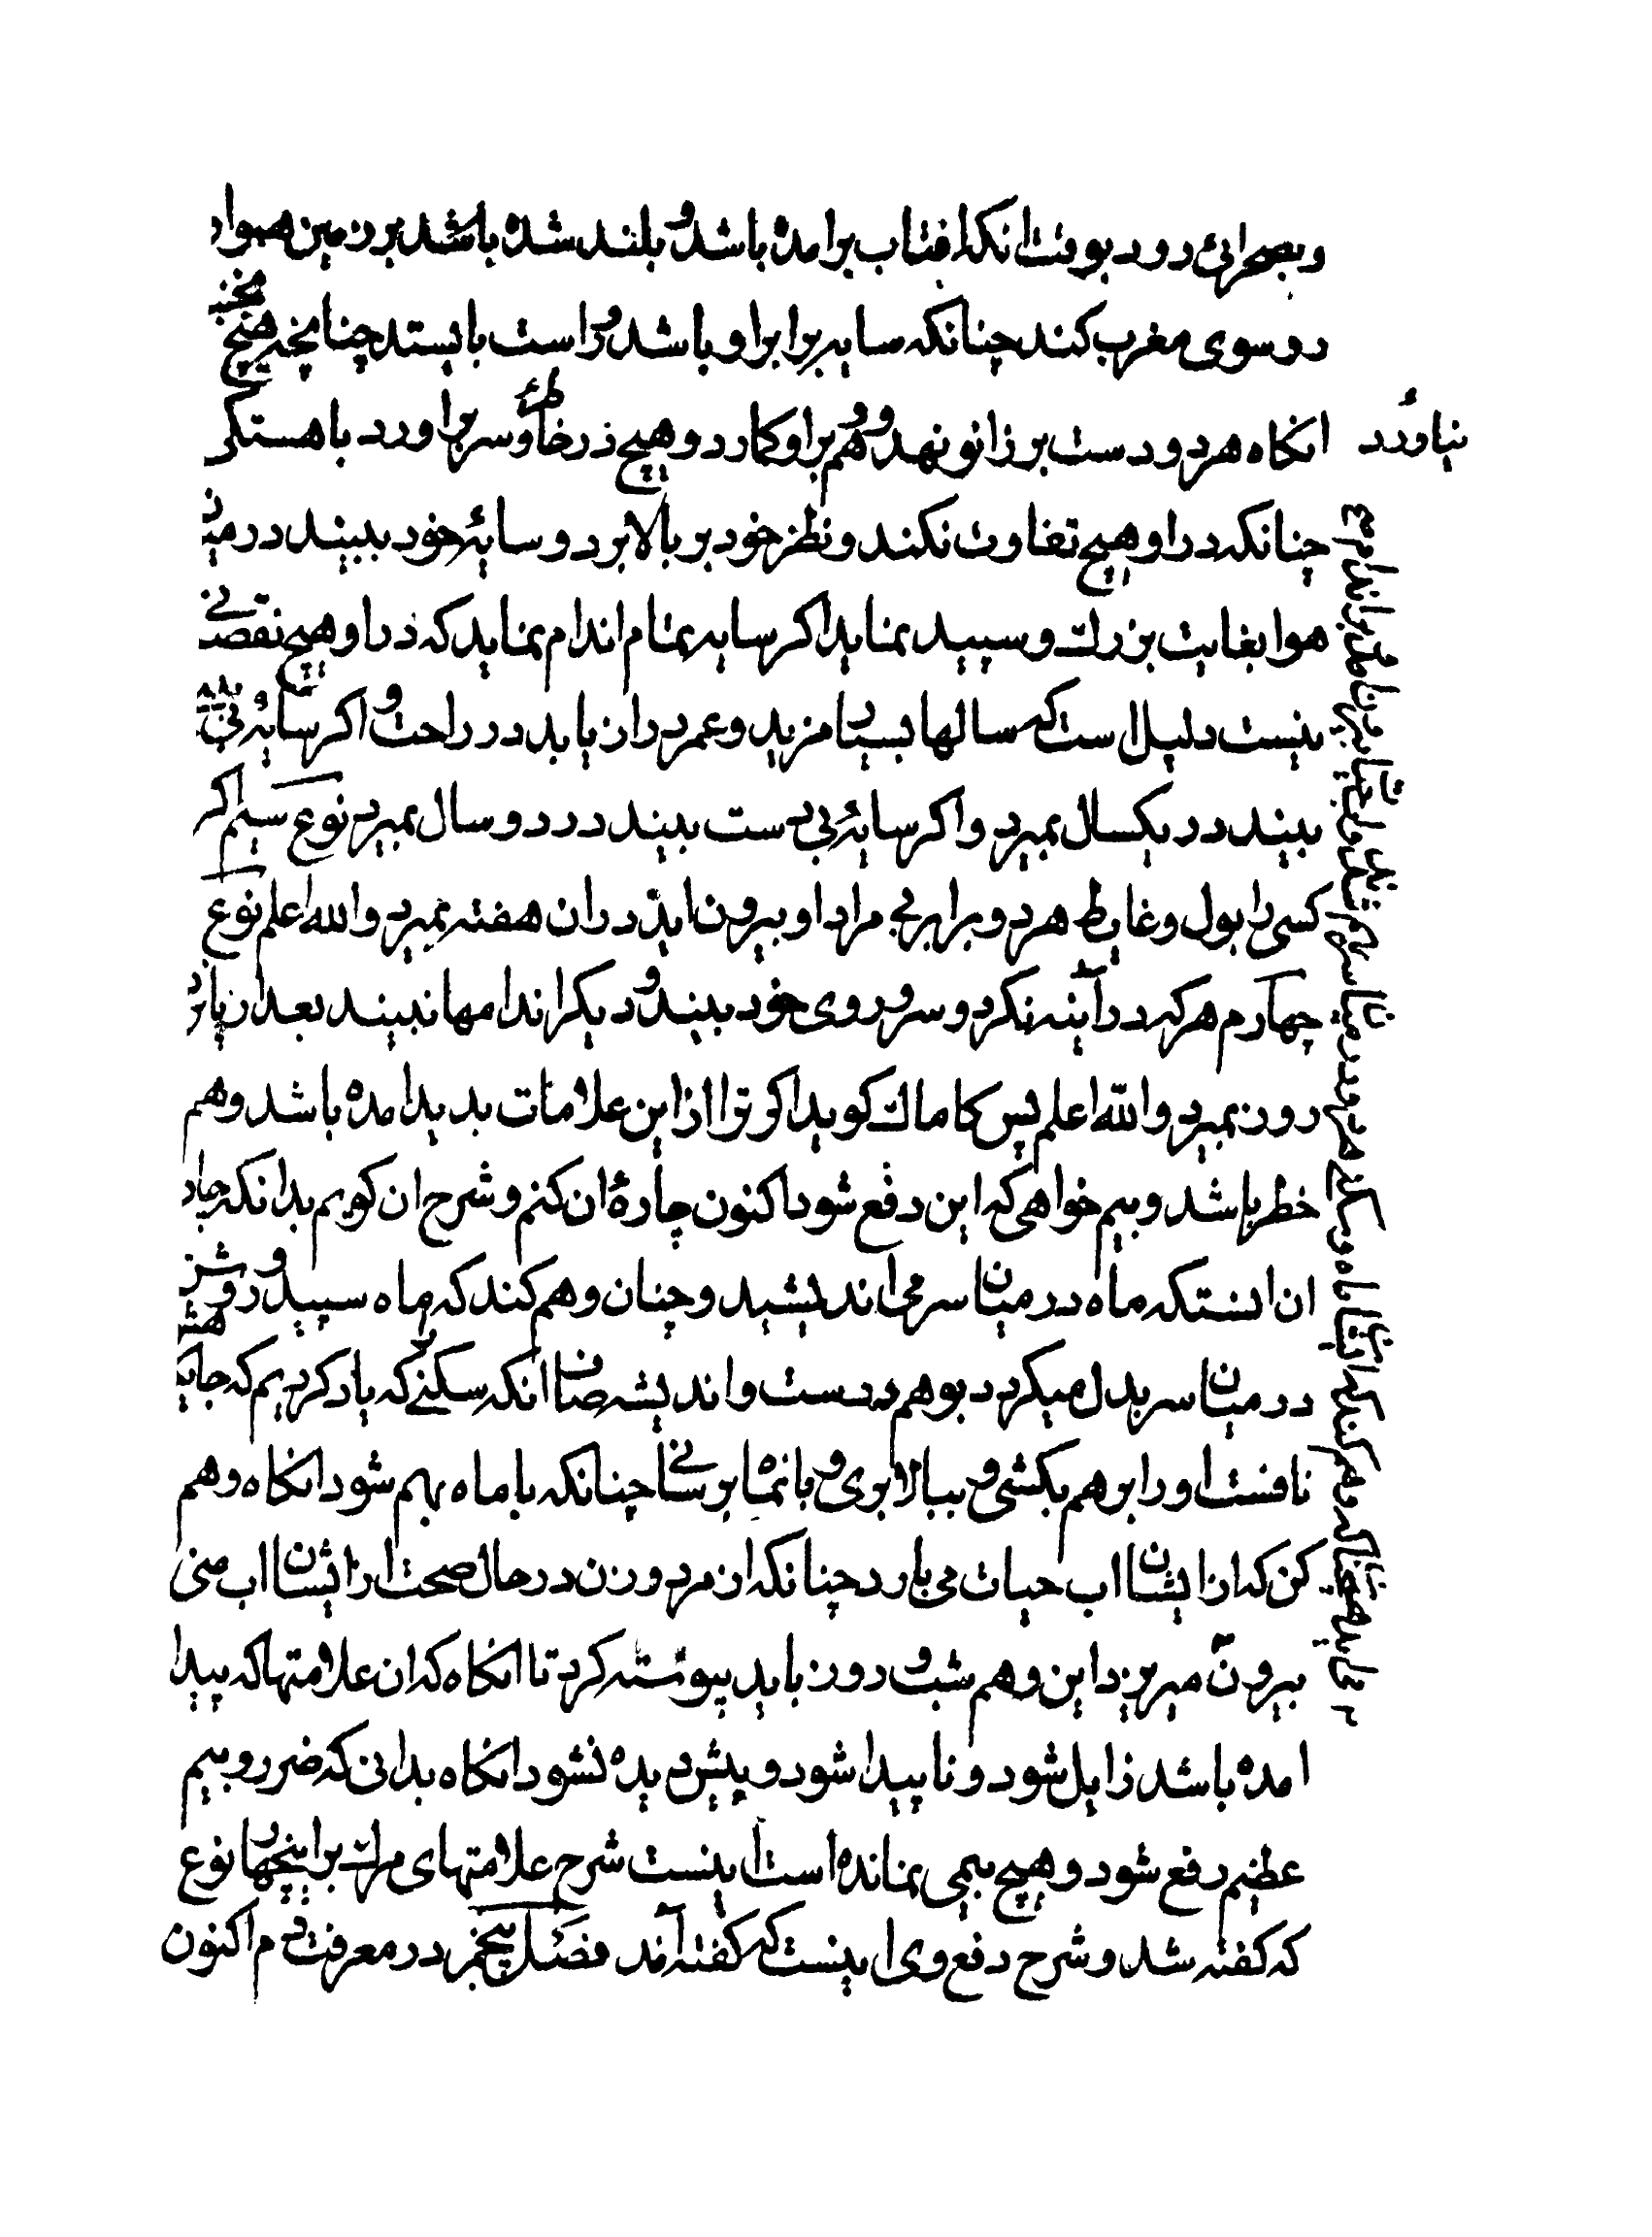 وبصحرائ رود بوقت انکه افتاب برامده باشد و بلند شده باشد بر زمین هموار
رو سوی مغرب کند چنانکه سایه برابر او باشد و راست بایستد چنانچه هیچ نجنبد
انکاه هر دو دست بر زانو نهد و وهم بر او کمارد و هیچ در خاطر نیاورد و سر براورد باهستکی
چنانکه در او هیچ تفاوت نکند و نظر خود بر بالا برد و سایهٔ خود ببیند در میان
هوا بغایت بزرک و سپید نماید اکر سایه تمام اندام نماید که در او هیچ نقصی
نیست دلیل است که سالها بسیار مزید و عمر دراز یابد در راحت و اکر سایهٔ بی سر
بیند در یکسال بمیرد و اکر سایهٔ بی دست بیند در دو سال بمیرد نوع سیم اکر
کسی را بول و غایط هر دو برابر بی مراد او بیرون اید در ان هفته بمیرد والله اعلم نوع
چهارم هر که در آینه نکرد و سر و روی خود بیند و دیکر اندامها نبیند بعد از پانزده
روز بمیرد والله اعلم پس کاماک کوید اکر ترا از این علامات بد پدید امده باشد و هم
خطر باشد و بیم خواهی که این دفع شود اکنون چارهٔ ان کنم و شرح ان کویم بدانکه چاره
ان انستکه ماه در میان سر می اندیشید و چنان وهم کند که ماه سپید و روشن
در میان سر بدل میکرد بوهم درست و اندیشه صاف انکه سکنی که یاد کردیم که جایکه
نافست او را بر هم بکشی و ببالا بری و با نجا برسانی چنانکه با ماه بهم شود انکاه وهم
کن که از ایشان اب حیات می بارد چنانکه از مرد و زن در حال صحبت از ایشان اب منی
بیرون میریزد این وهم شب و روز باید پیوسته کرد تا انکاه که ان علامتها که پیدا
امده باشد زایل شود و ناپیدا شود و پیش دیده نشود انکاه بدانی که ضرر و بیم
عظیم دفع شود و هیچ بیمی نمانده است اینست شرح علامتهای مرک بر این چهار نوع
که کفته شد و شرح دفع وی اینست که کفته آمد فصل پنجم در معرفت دم اکنون